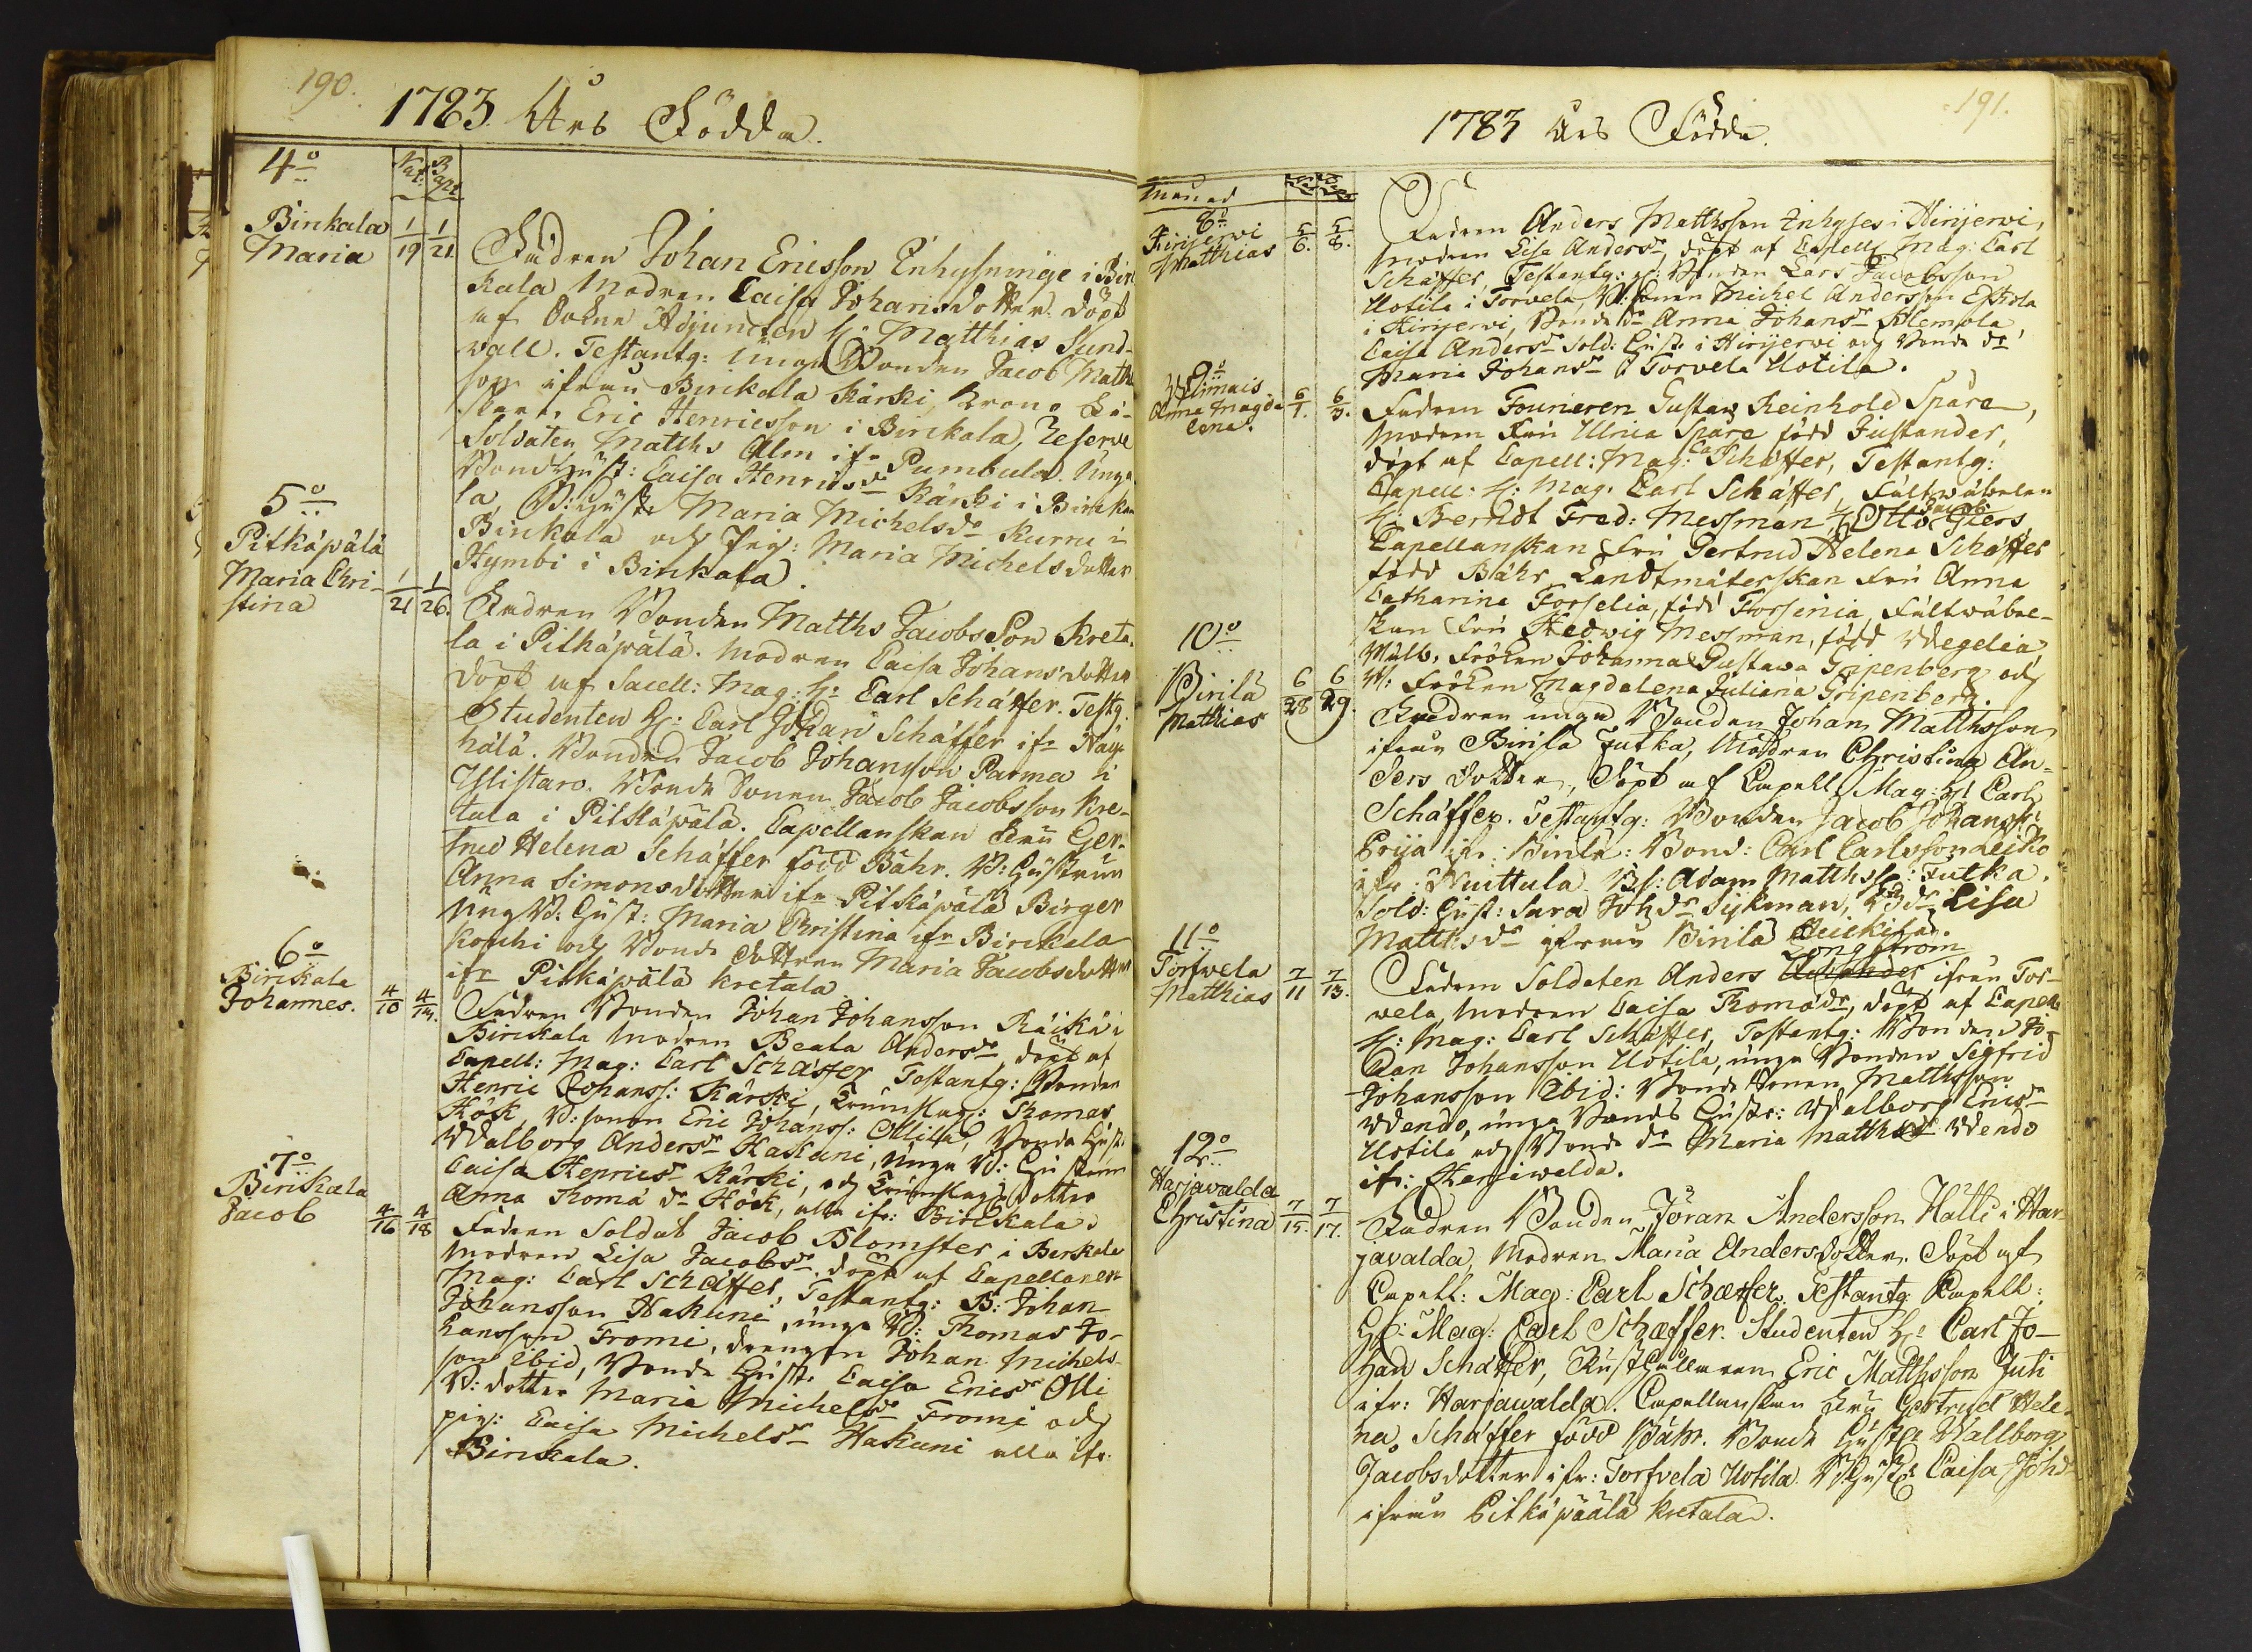 190.
1783. Års Födda.
4o
Nat. Bapt.
Birikala
Maria
1/19 1/21
Fadren Johan Ericsson Inhysninge i Biri
kala Modren Caisa Johansdotter. Döpt
af Sokne Adjuncten H: Matthias Sund-
wall. Testantg: unga Bonden Jacob Matths
son ifrån Birikala Kärski,
Eric Henricsson i Birikala, Reserve
Soldaten Matths Alm ifr Pumbula. Unga
Bond Hust: Caisa Henricsdr Kärski i Birika
la, B: Hust: Maria Michelsdr Kurru i
Birikala och Pig: Maria Michelsdotter
Hymbi i Birikala.
5o
Pitkäpälä
Maria Chri-
stina
1/21 1/26.
Fadren Bonden Matths Jacobs Son Kreta-
la i Pitkäpälä. Modren Caisa Johans dotter
Döpt af Sacell: Mag: H: Carl Schäffer. Testg:
Studenten H: Carl Johan Schäffer ifr
hälä. Bonden Jacob Johansson Parma i
Ylistaro. Bonde Sonen Jacob Jacobsson Kre-
tala i Pitkäpälä. Capellanskan Fru Ger-
trud Helena Schäffer född Bähr. B: Hustrun
Anna Simonsdotter ifr Pitkäpälä Birger
Ung B: Hust: Maria Christina ifr Birikala
Koschi och Bonde Dottren Maria Jacobsdotter
ifr Pitkäpälä Kretala
6o
Birikala
Johannes.
4/10 4/14.
Fadren Bonden Johan Johansson Räikä i
Birikala Modren Beata Andersdr, döpt af
Capell: Mag: Carl Schäffer Testantg: Bonden
Henric Johanss: Kärski, Krämslag: Thomas
Höck, B: sonen Eric Johanss: Ollila, Bonde Hust:
Walborg Andersdr Hakuni, Unga B: Hustrun
Caisa Henricsdr Kärski, och Krämslag: dotter
Anna Thomä dr Höck, alla ifr: Birikala.
7o
Birikala
Jacob
4/16 4/18
Fadren Soldat Jacob Blomster i Birikala
Modren Lisa Jacobsdr. Döpt af Capellanen
Mag: Carl Schäffer, Testantg: B: Johan
Johansson Hakuni, unga B: Thomas Jo-
hansson Fromi, drengen Johan Michels-
son ibid, Bonde Hust: Caisa Ericsdr Olli
B: dotter Maria Michelsdr Fromi och
pig: Caisa Michelsdr Hakuni alla ifr:
Birikala.
191.
1783 Års Födda.
Månad
8o
Hirijerwi
Matthias
5/6. 5/8.
Fadren Anders Matthsson Inhyses i Hirijerwi,
Modren Lisa Andersdr, döpt af Capell: Mag: Carl
Schäffer, Testantg: H: Bonden Lars Jacobsson
Uotila i Torvela, B: Sonen Michel Andersson Eskola
i Hirijerwi, Bonde dr Anna Johansdr Klemola,
Caisa Andersdr Sold: Hust: i Hirijerwi och Bonde dr
Maria Johansdr i Torvela Uotila.
9o
Wilmais
Anna Magda-
lena.
6/1. 6/3.
Fadren Fourieren Gustav Reinhold Spåre,
Modren Fru Ulrica Spåre född Justander,
döpt af Capell: Mag: Ca Schäffer, Testantg:
Capell: H: Mag: Carl Schäffer, Fältwäbelen
H: Berndt Fred: Messman H: Otto Jacob Giers,
Capellanskan Fru Gertrud Helena Schäffer
född Bähr, Landtmäterskan Fru Anna
Catharina Forselia, född Forsenia, Fältwäbel-
skan Fru Hedwig Messman, född Wegelia
Wälb. Fröken Johanna Gustava Gripenberg och
W: Fröken Magdalena Juliana Gripenberg.
10o
Birilä
Matthias
6/28 6/29.
Fadren unga Bonden Johan Matthsson
ifrån Birilä Jutka, Modren Christina An-
ders dotter, Döpt af Capell: Mag: H: Carl
Schäffer. Testantg: Bonden Jacob Johansson
Erija ifr: Birilä: Bond: Carl Carlsson Leiko
ifr: Nuittula. Bs: Adam Matthss: Jutka.
Sold: Hust: Sara Joh:dr Sykman, Bd:dr Lisa
Matthsdr ifrån Birilä Heickilä.
11o
Torfwela
Matthias
7/11 7/13.
Fadren Soldaten Anders Longström ifrån Tor-
wela, Modren Caisa Thomädr, döpt af Capell:
H: Mag: Carl Schäffer, Testantg: Bonden Jo-
han Johansson Uotila, unga Bonden Sigfrid
Johansson Ibid: Bonde Sonen Matthsson
Wendo, unga Bonds Hustr: Walborg Ericsdr
Uotila och Bonde dr Maria Matthsdr Wendo
ifr: Harjawalda.
12o
Harjavalda
Christina
7/15. 7/17.
Fadren Bonden Jöran Andersson Halli i Har-
javalda, Modren Maria Andersdotter. Döpt af
Capell: Mag: Carl Schæffer. Testantg: Capell:
H: Mag: Carl Schæffer. Studenten H: Carl Jo-
han Schäffer, Rusthållaren Eric Matthsson Juti
ifr: Harjawalda. Capellanskan Fru Gertrud Hele-
na Schäffer född Bähr. Bonde Hustr Wallborg
Jacobsdotter ifr: Torfvela Uotila B: Hustr Caisa Joh:dr
ifrån Pitkäpäälä Kretala.